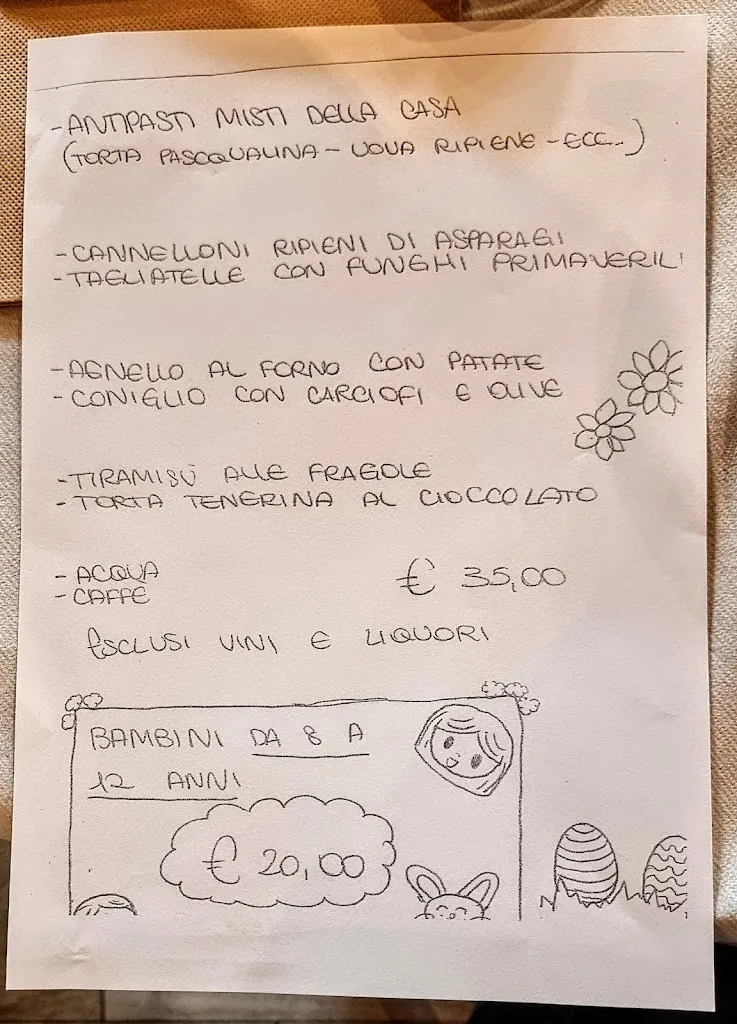 - ANTIPASTI MISTI DELLA CASA
(TORTA PASCQUALINA - UOVA RIPIENE - ECC...)
- CANNELLONI RIPIENI DI ASPARAGI
- TAGLIATELLE CON FUNGHI PRIMAVERILI
- AGNELLO AL FORNO CON PATATE
- CONIGLIO CON CARCIOFI E OLIVE
- TIRAMISÙ ALLE FRAGOLE
- TORTA TENERINA AL CIOCCOLATO
- ACQUA
- CAFFÈ
€ 35,00
ESCLUSI VINI E LIQUORI
BAMBINI DA 8 A
12 ANNI
€ 20,00